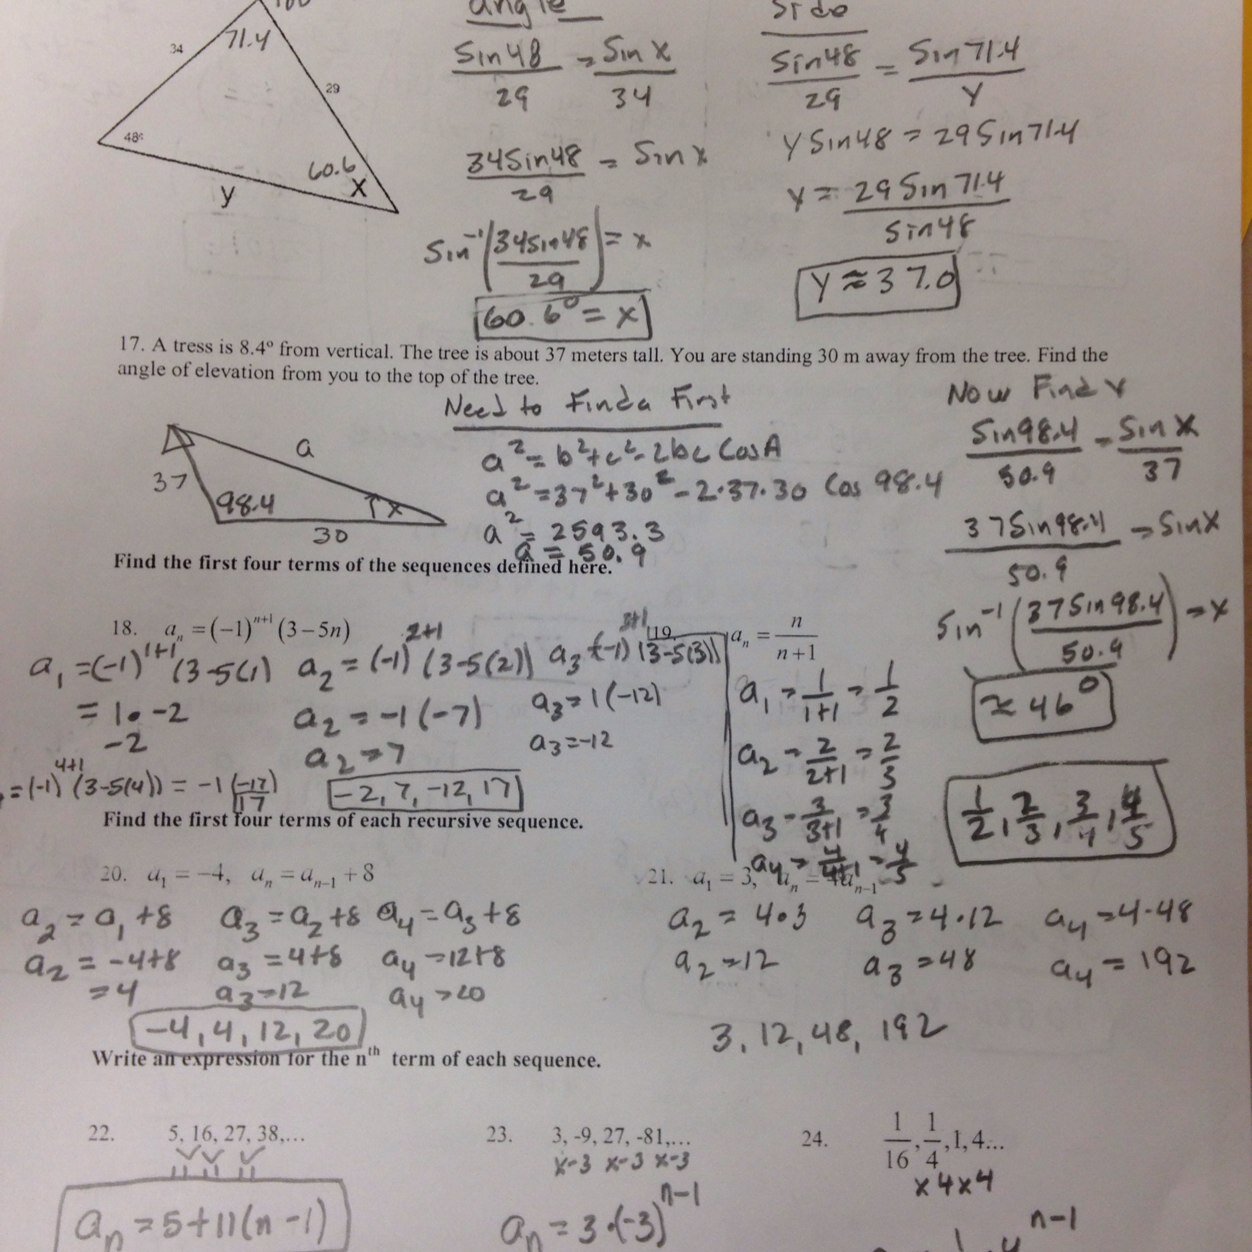 71.4
34
29
48°
60.6
x
y
angle
Sin48/29 = Sin x/34
34Sin48/29 = Sin x
Sin⁻¹(34sin48/29) = x
60.6° = x
Side
Sin48/29 = Sin71.4/y
y Sin48 = 29Sin71.4
y = 29Sin71.4/Sin48
y ≈ 37.0
17. A tress is 8.4° from vertical. The tree is about 37 meters tall. You are standing 30 m away from the tree. Find the
angle of elevation from you to the top of the tree.
Need to Find a First
a² = b²+c²-2bc CosA
a² = 37²+30²-2·37·30 Cos 98.4
a² = 2593.3
a = 50.9
Now Find x
Sin98.4/50.9 = Sin x/37
37Sin98.4/50.9 = Sin x
Sin⁻¹(37Sin98.4/50.9) = x
≈ 46°
37
a
98.4
x
30
Find the first four terms of the sequences defined here.
18. aₙ = (-1)ⁿ⁺¹(3-5n)
a₁ = (-1)¹⁺¹(3-5(1)
= 1 · -2
-2
a₂ = (-1)²⁺¹(3-5(2))
a₂ = -1(-7)
a₂ = 7
a₃ (-1)³⁺¹(3-5(3))
a₃ = 1(-12)
a₃ = -12
= (-1)⁴⁺¹(3-5(4)) = -1(-17)
17
-2, 7, -12, 17
19. aₙ = n/(n+1)
a₁ = 1/(1+1) = 1/2
a₂ = 2/(2+1) = 2/3
a₃ = 3/(3+1) = 3/4
a₄ = 4/(4+1) = 4/5
1/2, 2/3, 3/4, 4/5
Find the first four terms of each recursive sequence.
20. a₁ = -4, aₙ = aₙ₋₁ + 8
a₂ = a₁ + 8
a₂ = -4+8
= 4
a₃ = a₂ + 8
a₃ = 4+8
a₃ = 12
a₄ = a₃ + 8
a₄ = 12+8
a₄ = 20
-4, 4, 12, 20
21. a₁ = 3, aₙ = 4aₙ₋₁
a₂ = 4·3
a₂ = 12
a₃ = 4·12
a₃ = 48
a₄ = 4·48
a₄ = 192
3, 12, 48, 192
Write an expression for the nᵗʰ term of each sequence.
22. 5, 16, 27, 38,...
11 11 11
aₙ = 5+11(n-1)
23. 3, -9, 27, -81,...
x-3 x-3 x-3
aₙ = 3·(-3)ⁿ⁻¹
24. 1/16, 1/4, 1, 4...
x4 x4
n-1